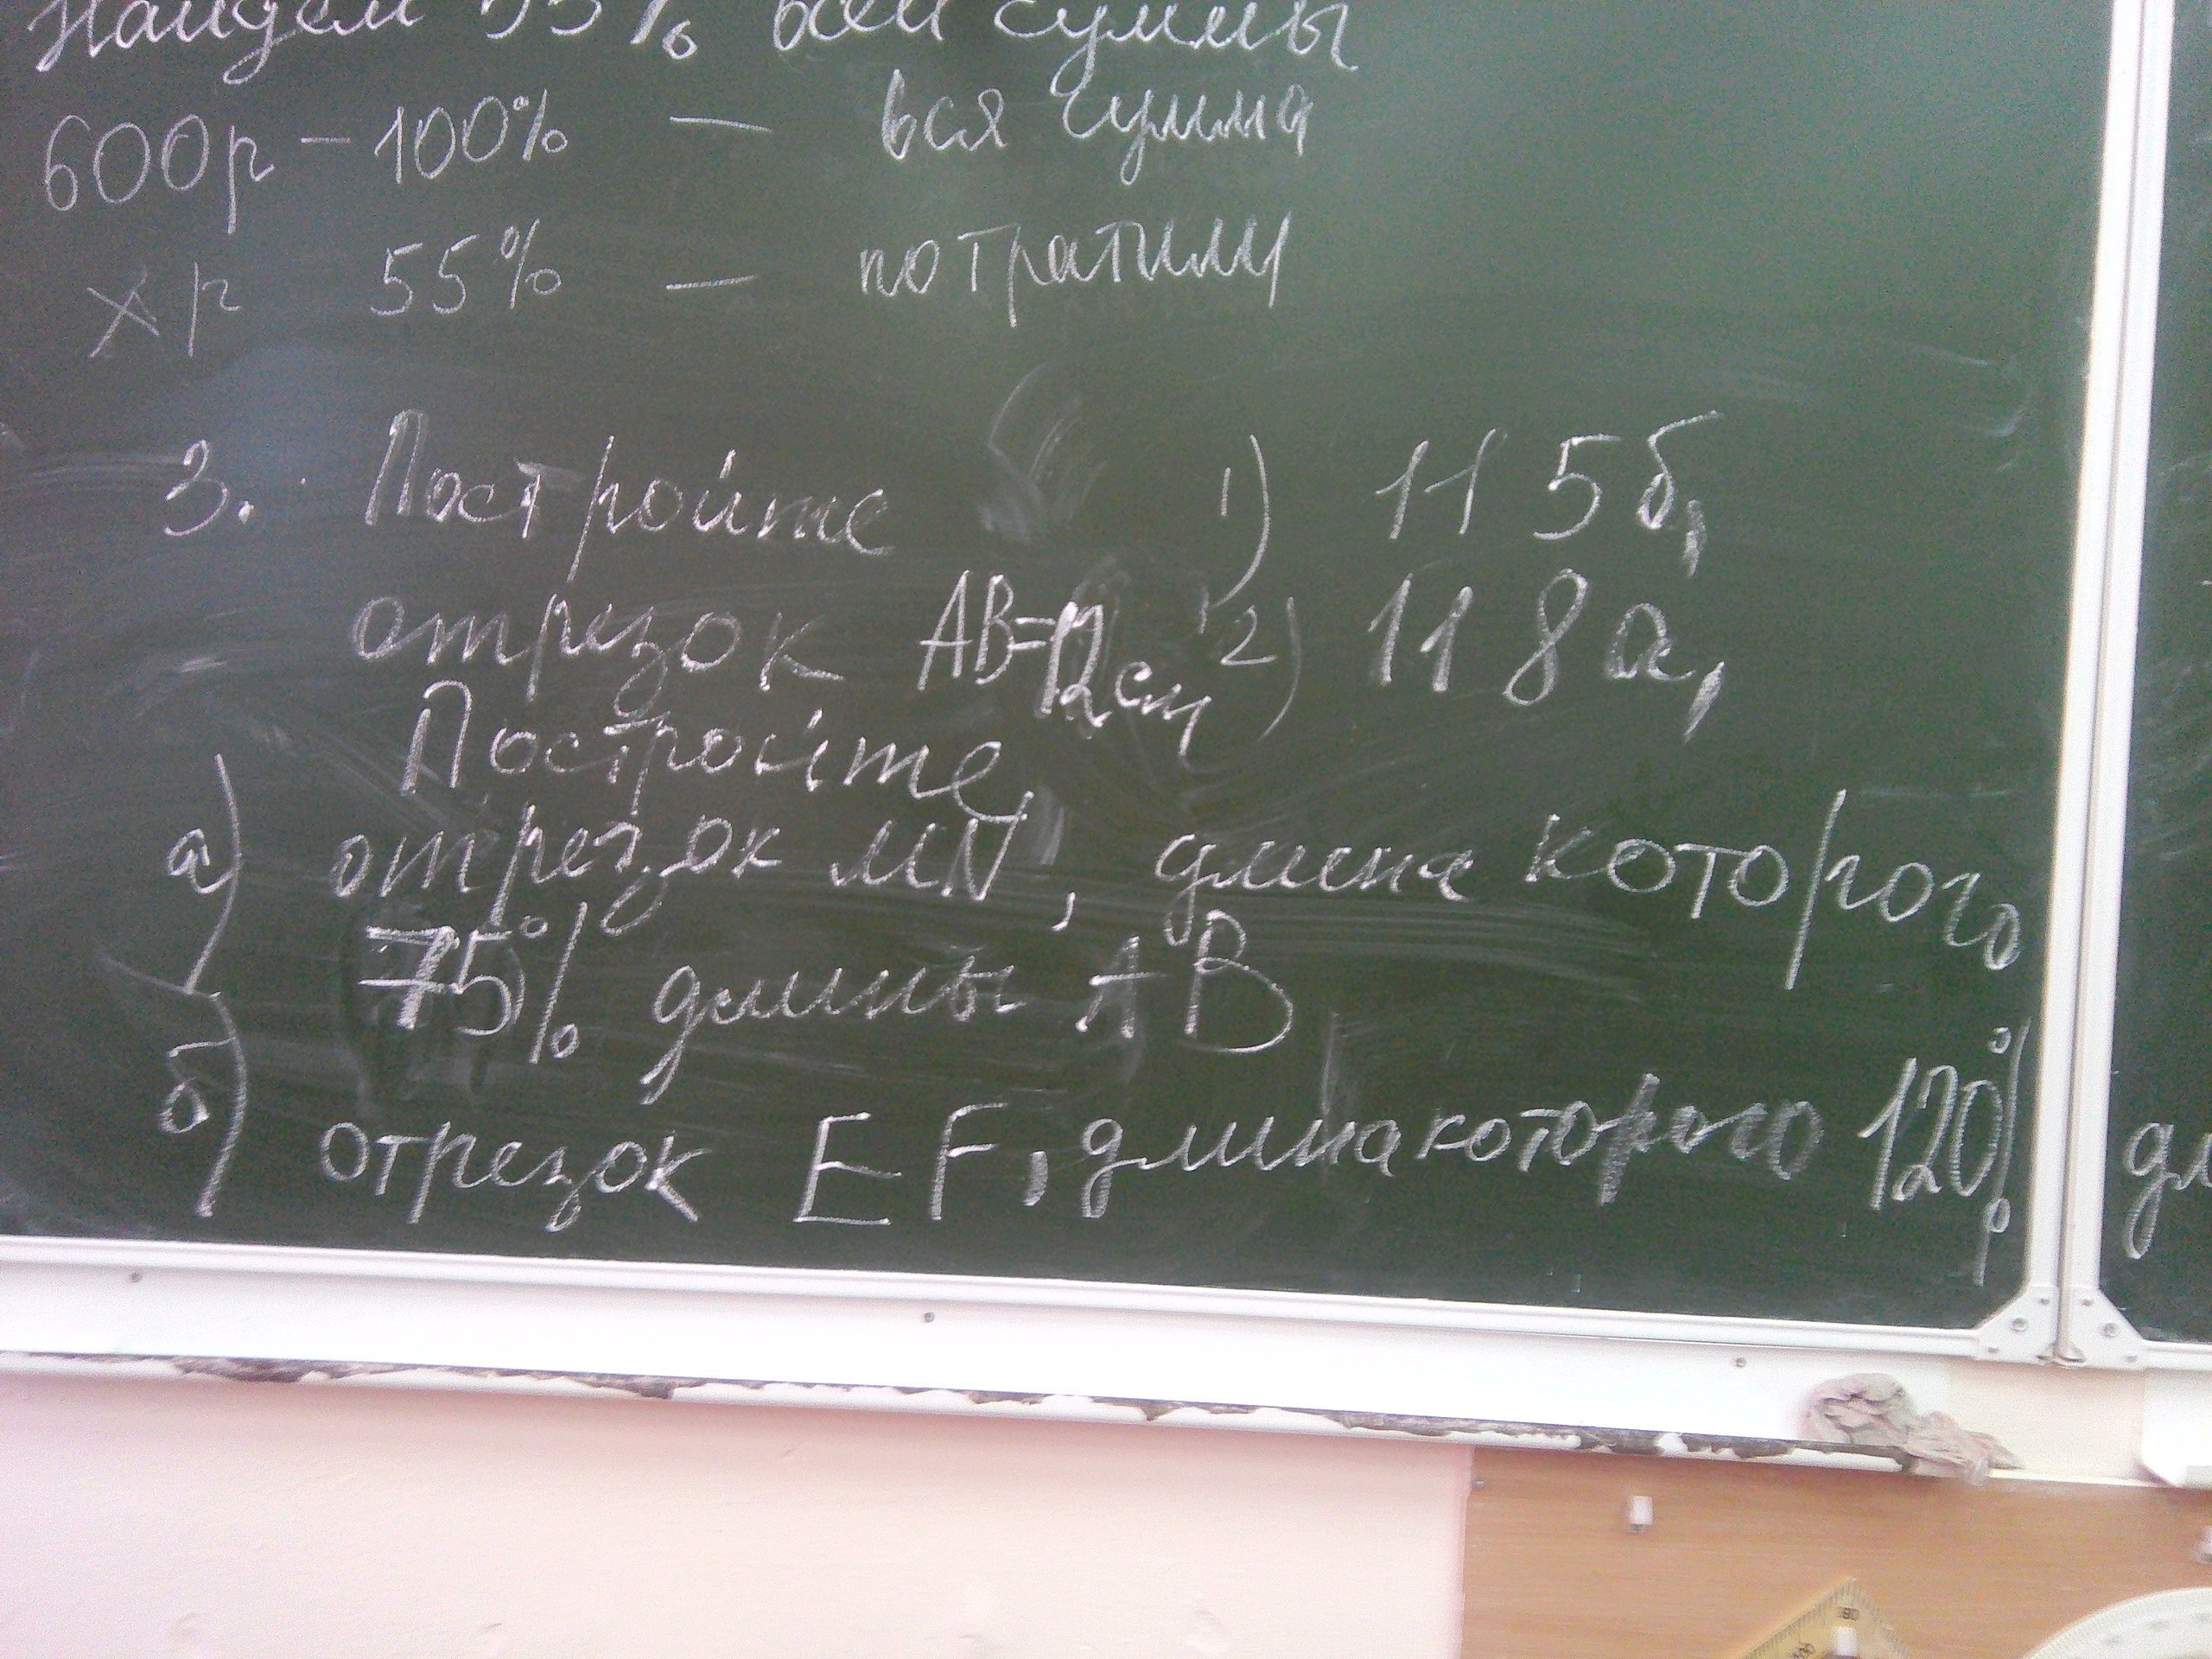 Найдем 55% всей суммы
600р - 100% — вся сумма
хр 55% — потратили
3. Постройте 1) 115б,
отрезок AB=12см 2) 118а,
Постройте
а) отрезок MN, длина которого
75% длины AB
б) отрезок EF, длина которого 120%
дл